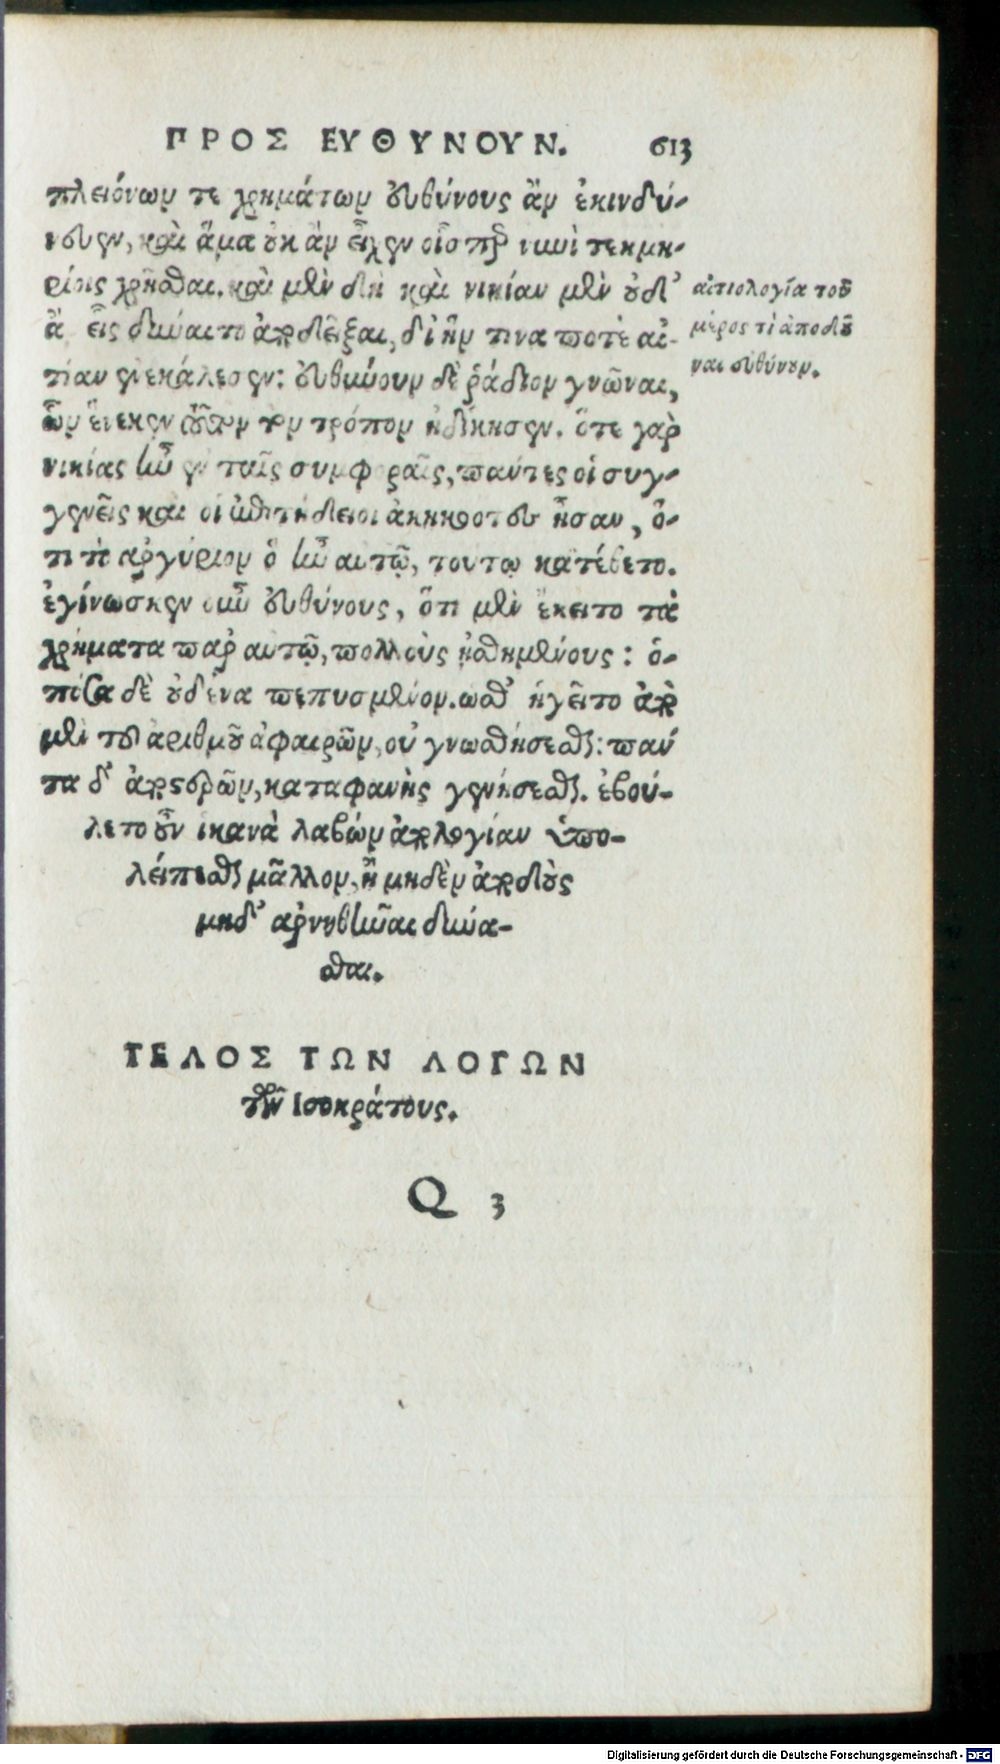 ΠΡΟΣ ΕΥΘΥΝΟΥΝ. 613
πλειόνων τε χρημάτων εὐθύνους ἂν ἐκινδύ-
νευεν, καὶ ἅμα οὐκ ἂν εἶχεν οἷσπερ νυνὶ τεκμη-
ρίοις χρῆσθαι. καὶ μὲν δὴ καὶ νικίαν μὲν οὐδ'
ἂ εἷς δύναιτο ἀποδεῖξαι, δι' ἥν τινα ποτὲ αἰ-
τίαν ἐνεκάλεσεν: εὐθύνουν δὲ ῥάδιον γνῶναι,
ὧν ἕνεκεν τὸν τρόπον ἠδίκησεν. ὅτε γὰρ
νικίας ἦν ἐν ταῖς συμφοραῖς, πάντες οἱ συγ-
γενεῖς καὶ οἱ ἐπιτήδειοι ἀκηκοότες ἦσαν, ὅ-
τι τὸ ἀργύριον ὃ ἦν αὐτῷ, τούτῳ κατέθετο.
ἐγίνωσκεν οὖν εὐθύνους, ὅτι μὲν ἔκειτο τὰ
χρήματα παρ' αὐτῷ, πολλοὺς ᾐσθημένους: ὁ-
πόσα δὲ οὐδένα πεπυσμένον. ὥσθ' ἡγεῖτο ἀπὸ
μὲν τοῦ ἀριθμοῦ ἀφαιρῶν, οὐ γνωσθήσεσθαι: πάν
τα δ' ἀποστερῶν, καταφανὴς γενήσεσθαι. ἐβού-
λετο οὖν ἱκανὰ λαβὼν ἀπολογίαν ὑπο-
λείπεσθαι μᾶλλον, ἢ μηδὲν ἀποδοὺς
μηδ' ἀρνηθῆναι δύνα-
σθαι.
αἰτιολογία τοῦ
μέρος τὶ ἀποδοῦ
ναι εὐθύνουν.
ΤΕΛΟΣ ΤΩΝ ΛΟΓΩΝ
τῶν Ἰσοκράτους.
Q 3
Digitalisierung gefördert durch die Deutsche Forschungsgemeinschaft - DFG